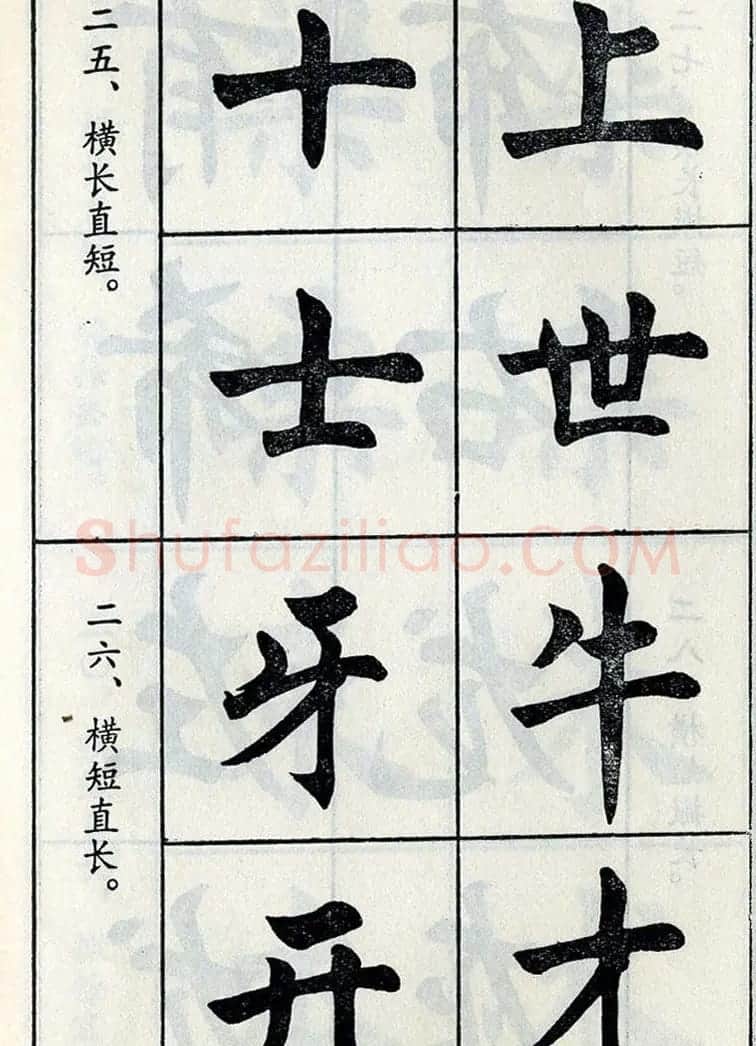 二五、横长直短。
十上
士世
Shufaziliao.COM
二六、横短直长。
牙牛
开才